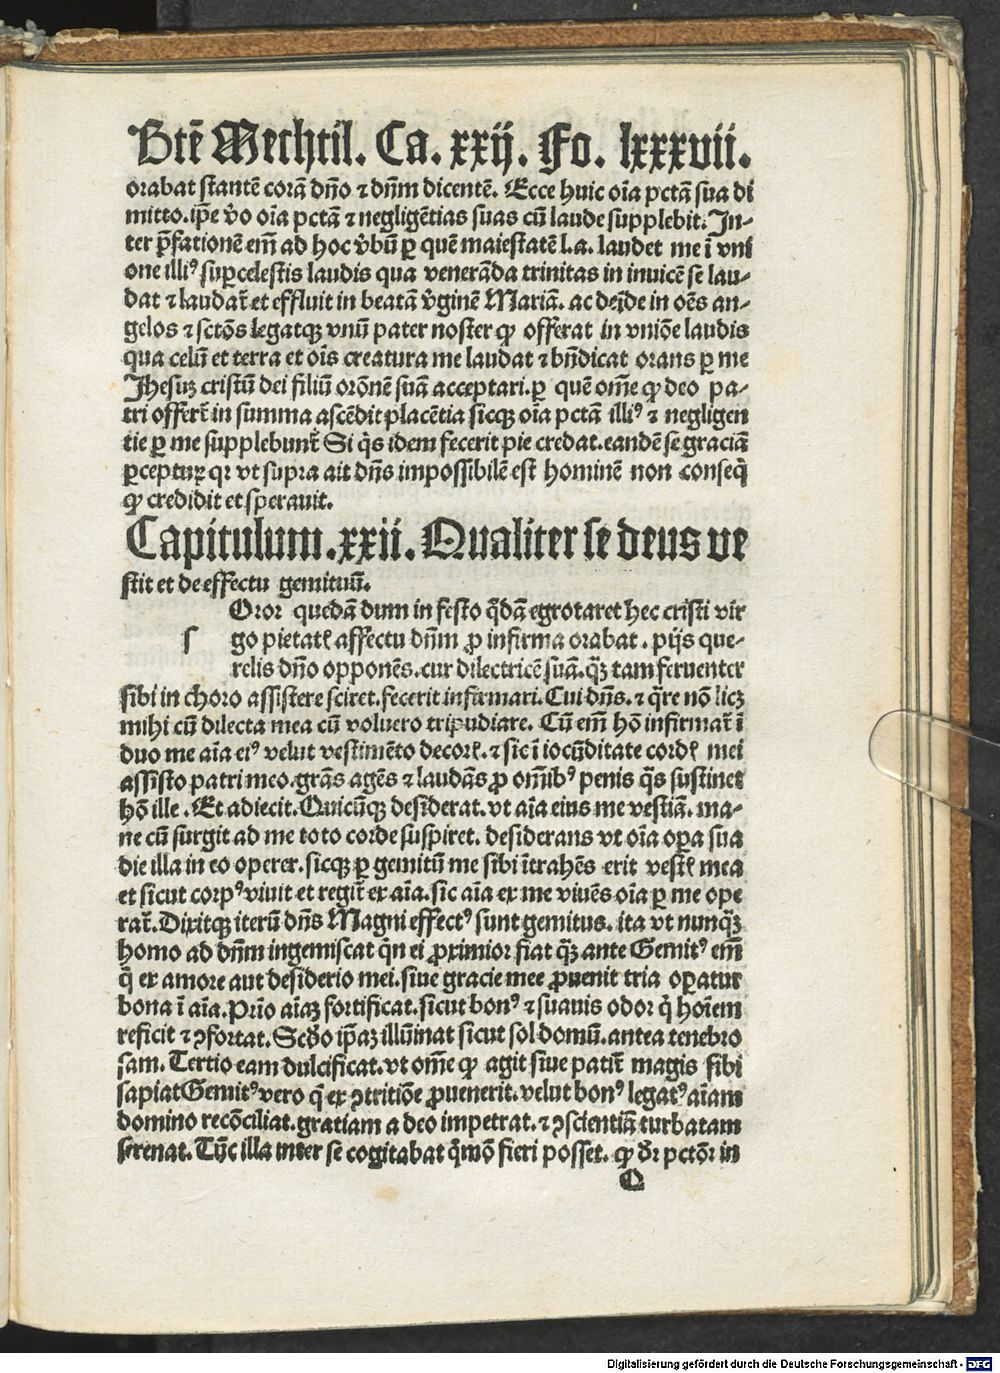 Btē Mechtil. Ca. xxij. Fo. lxxxvii.
orabat stantē corā dn̄o ⁊ dn̄m dicentē. Ecce huic oīa pctā sua di
mitto. ip̄e v̄o oīa pctā ⁊ negligētias suas cū laude supplebit. In-
ter p̄fationē em̄ ad hoc v̄bū ꝑ quē maiestatē l.a. laudet me ī vni
one illiꝰ suꝑcelestis laudis qua venerāda trinitas in inuicē se lau-
dat ⁊ laudat᷑. et effluit in beatā v̄ginē Mariā. ac deīde in oēs an-
gelos ⁊ sctōs legatqꝫ vnū pater noster qꝫ offerat in vniōe laudis
qua celū et terra et oīs creatura me laudat ⁊ bn̄dicat orans ꝑ me
Jhesuꝫ cristū dei filiū orōnē suā acceptari. ꝑ quē om̄e qꝫ deo pa-
tri offert᷑ in summa ascēdit placētia sicqꝫ oīa pctā illiꝰ ⁊ negligen
tie ꝑ me supplebunt᷑ Si q̄s idem fecerit pie credat. eandē se graciā
ꝑcepturꝫ qꝛ vt supra ait dn̄s impossibilē est hominē non conseq̄
qꝫ credidit et sperauit.
Capitulum. xxii. Qualiter se deus ve
stit et de effectu gemituū.
Oror quedā dum in festo q̄dā egrotaret hec cristi vir
s go pietatꝭ affectu dn̄m ꝓ infirma orabat. pijs que-
relis dn̄o opponēs. cur dilectricē suā. qꝫ tam feruenter
sibi in choro assistere sciret. fecerit infirmari. Cui dn̄s. ⁊ q̄re nō licꝫ
mihi cū dilecta mea cū voluero tripudiare. Cū em̄ hō infirmat᷑ ī
duo me aīa eiꝰ velut vestimēto decorꝭ. ⁊ sic ī iocūditate cordꝭ mei
assisto patri meo. grās agēs ⁊ laudās ꝓ om̄ibꝰ penis q̄s sustinet
hō ille. Et adiecit. Quicūqꝫ desiderat. vt aīa eius me vestiā. ma-
ne cū surgit ad me toto corde suspiret. desiderans vt oīa oꝑa sua
die illa in eo operer. sicqꝫ ꝑ gemitū me sibi ītrahēs erit vestꝭ mea
et sicut corpꝰ viuit et regit᷑ ex aīa. sic aīa ex me viuēs oīa ꝑ me ope
rat᷑. Dixitqꝫ iterū dn̄s Magni effectꝰ sunt gemitus. ita vt nunqꝫ
homo ad dn̄m ingemiscat qn̄ ei ꝓximior fiat qꝫ ante Gemitꝰ em̄
q̄ ex amore aut desiderio mei. siue gracie mee ꝓuenit tria oꝑatur
bona ī aīa. Prīo aīaꝫ fortificat. sicut bonꝰ ⁊ suauis odor q̄ hoīem
reficit ⁊ ꝯfortat. Scd̄o ip̄aꝫ illūinat sicut sol domū. antea tenebro
sam. Tertio eam dulcificat. vt om̄e qꝫ agit siue patit᷑ magis sibi
sapiat Gemitꝰ vero q̄ ex ꝯtritiōe ꝓuenerit. velut bonꝰ legatꝰ aīam
domino recōciliat. gratiam a deo impetrat. ⁊ ꝯscientiā turbatam
serenat. Tūc illa inter se cogitabat q̄mō fieri posset. qꝫ dr̄ pctōꝛ in
O
Digitalisierung gefördert durch die Deutsche Forschungsgemeinschaft - DFG